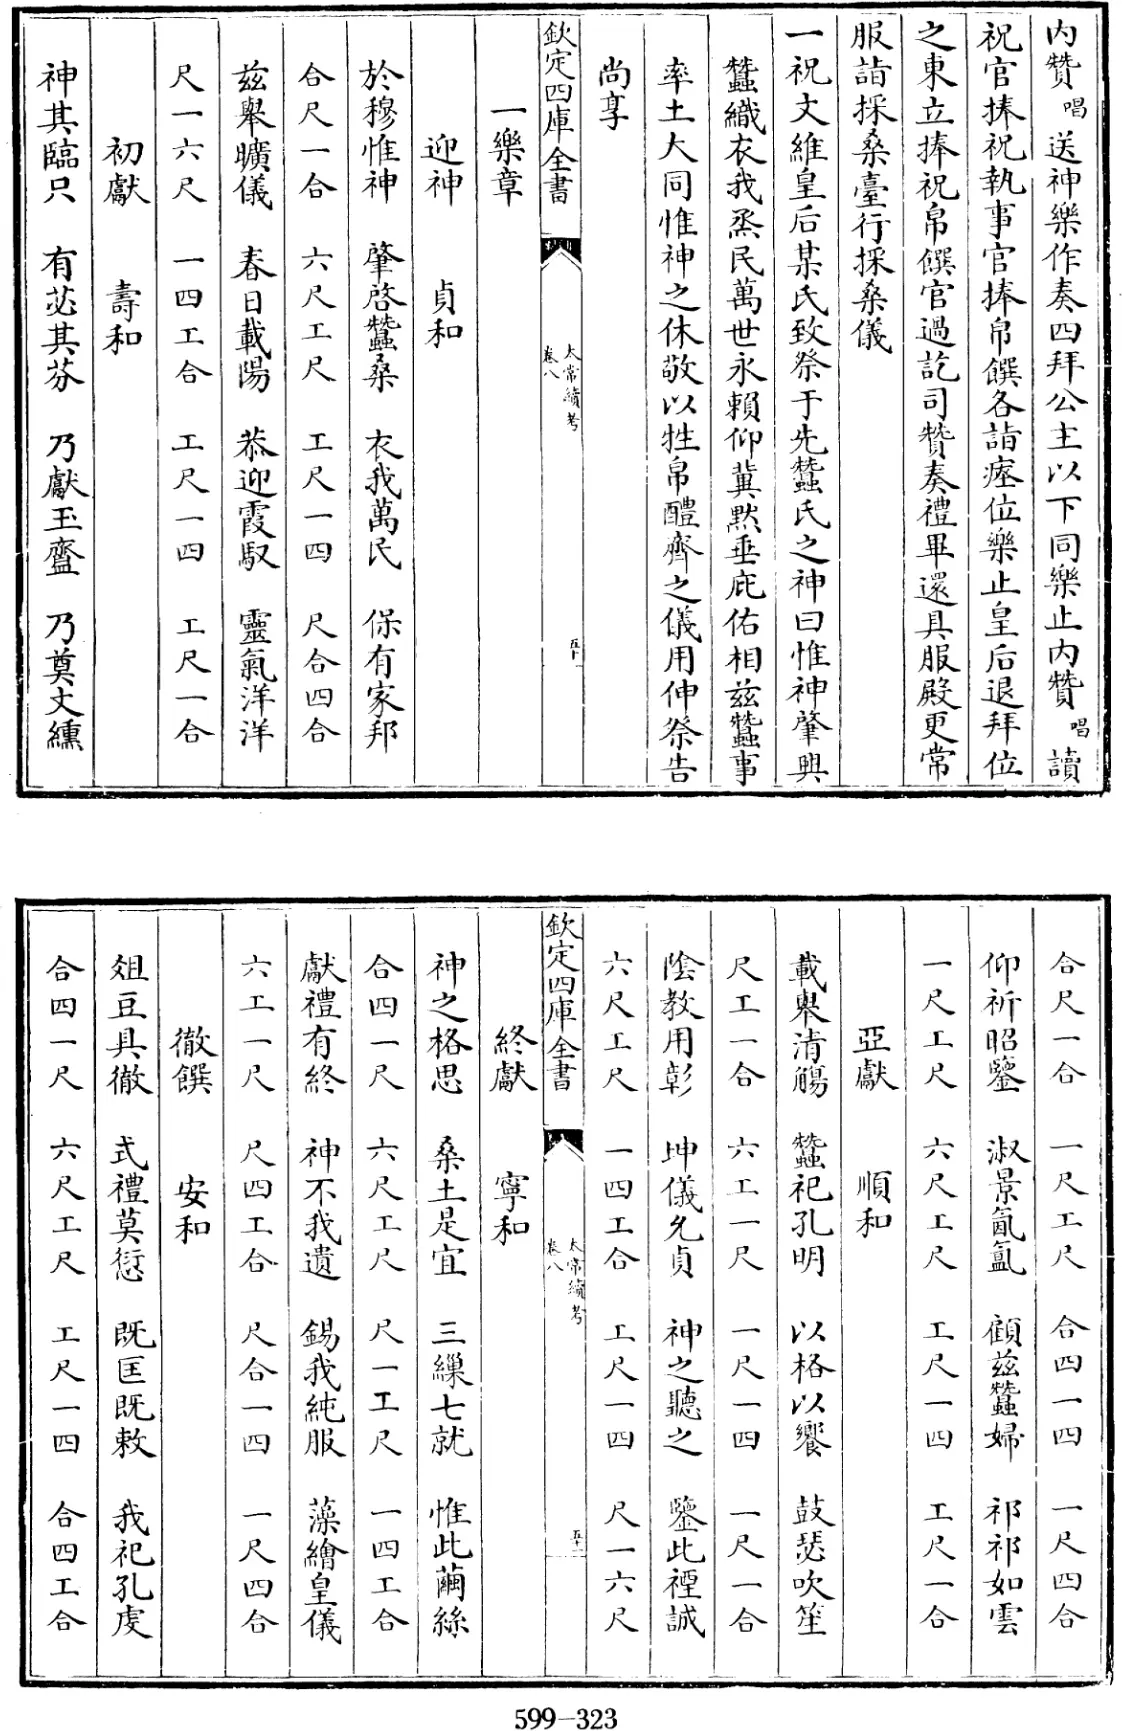 内贊唱送神樂作奏四拜公主以下同樂止内贊唱讀
祝官捧祝執事官捧帛饌各詣瘞位樂止皇后退拜位
之東立捧祝帛饌官過訖司贊奏禮畢還具服殿更常
服詣採桑臺行採桑儀
一祝文維皇后某氏致祭于先蠶氏之神曰惟神肇興
蠶織衣我烝民萬世永賴仰冀黙垂庇佑相兹蠶事
率土大同惟神之休敬以牲帛醴齊之儀用伸祭告
尚享
欽定四庫全書
太常續考
卷八
五十
一樂章
迎神 貞和
於穆惟神 肇啓蠶桑 衣我萬民 保有家邦
合尺一合 六尺工尺 工尺一四 尺合四合
兹舉曠儀 春日載陽 恭迎霞馭 靈氣洋洋
尺一六尺 一四工合 工尺一四 工尺一合
初獻 壽和
神其臨只 有苾其芬 乃獻玉齍 乃奠文纁
合尺一合 一尺工尺 合四一四 一尺四合
仰祈昭鑒 淑景氤氳 顧兹蠶婦 祁祁如雲
一尺工尺 六尺工尺 工尺一四 工尺一合
亞獻 順和
載舉清觴 蠶祀孔明 以格以饗 鼓瑟吹笙
尺工一合 六工一尺 一尺一四 一尺一合
陰教用彰 坤儀允貞 神之聽之 鑒此禋誠
六尺工尺 一四工合 工尺一四 尺一六尺
欽定四庫全書
太常續考
卷八
五十一
終獻 寧和
神之格思 桑土是宜 三繅七就 惟此繭絲
合四一尺 六尺工尺 尺一工尺 一四工合
獻禮有終 神不我遺 錫我純服 藻繪皇儀
六工一尺 尺四工合 尺合一四 一尺四合
徹饌 安和
俎豆具徹 式禮莫愆 既匡既敕 我祀孔虔
合四一尺 六尺工尺 工尺一四 合四工合
599-323